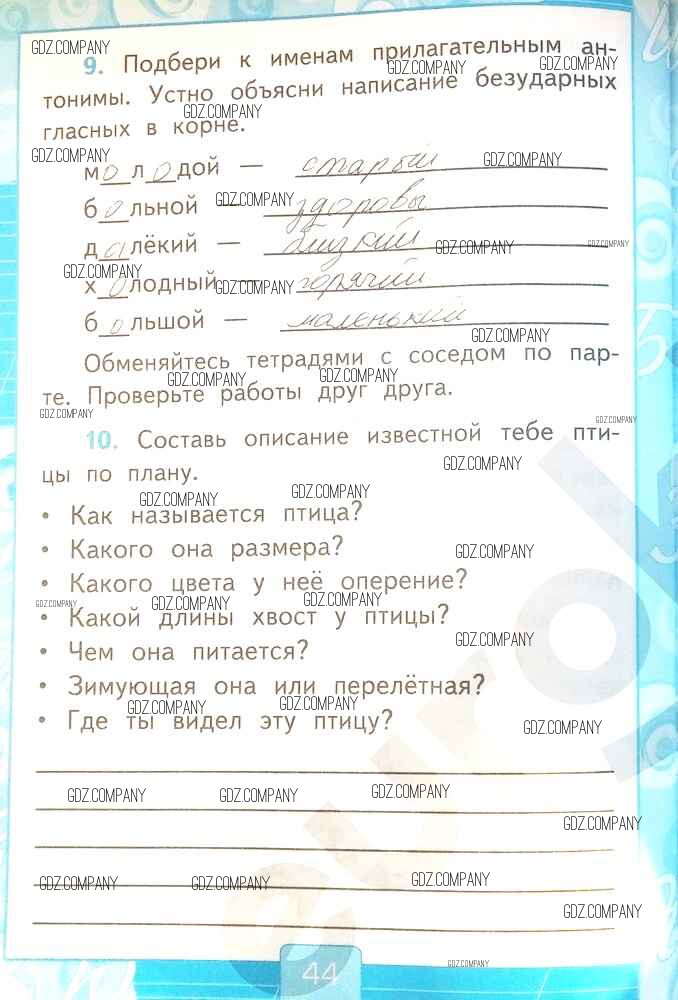 GDZ.COMPANY
9. Подбери к именам прилагательным ан-
GDZ.COMPANY GDZ.COMPANY
тонимы. Устно объясни написание безударных
GDZ.COMPANY
гласных в корне.
GDZ.COMPANY GDZ.COMPANY
молодой — старый
больной — здоровы
GDZ.COMPANY
далёкий — близкий
GDZ.COMPANY GDZ.COMPANY
GDZ.COMPANY GDZ.COMPANY
холодный — горячий
большой — маленький
GDZ.COMPANY
Обменяйтесь тетрадями с соседом по пар-
GDZ.COMPANY GDZ.COMPANY
те. Проверьте работы друг друга.
GDZ.COMPANY GDZ.COMPANY
10. Составь описание известной тебе пти-
GDZ.COMPANY
цы по плану.
GDZ.COMPANY GDZ.COMPANY
• Как называется птица?
• Какого она размера?
GDZ.COMPANY
• Какого цвета у неё оперение?
GDZ.COMPANY GDZ.COMPANY GDZ.COMPANY
• Какой длины хвост у птицы?
GDZ.COMPANY
• Чем она питается?
• Зимующая она или перелётная?
GDZ.COMPANY GDZ.COMPANY
• Где ты видел эту птицу?
GDZ.COMPANY
GDZ.COMPANY GDZ.COMPANY GDZ.COMPANY
GDZ.COMPANY
GDZ.COMPANY GDZ.COMPANY GDZ.COMPANY
GDZ.COMPANY
GDZ.COMPANY
44